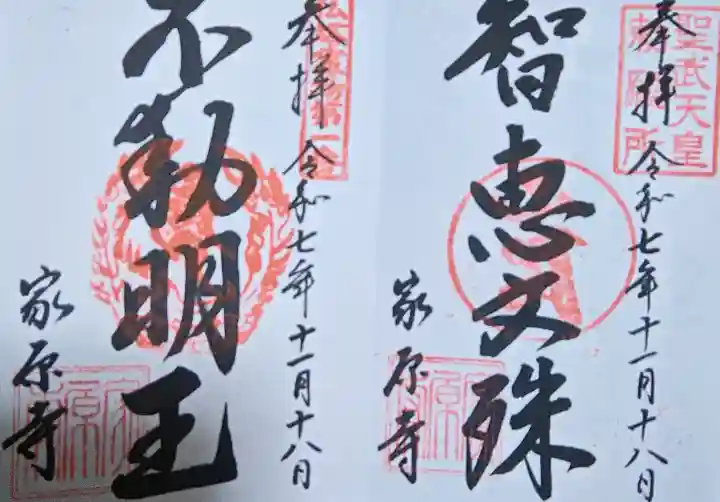 奉拝 令和七年十一月十八日
聖武天皇
勅願所
智恵文殊
家原寺
奉拝 令和七年十一月十八日
不動明王
家原寺